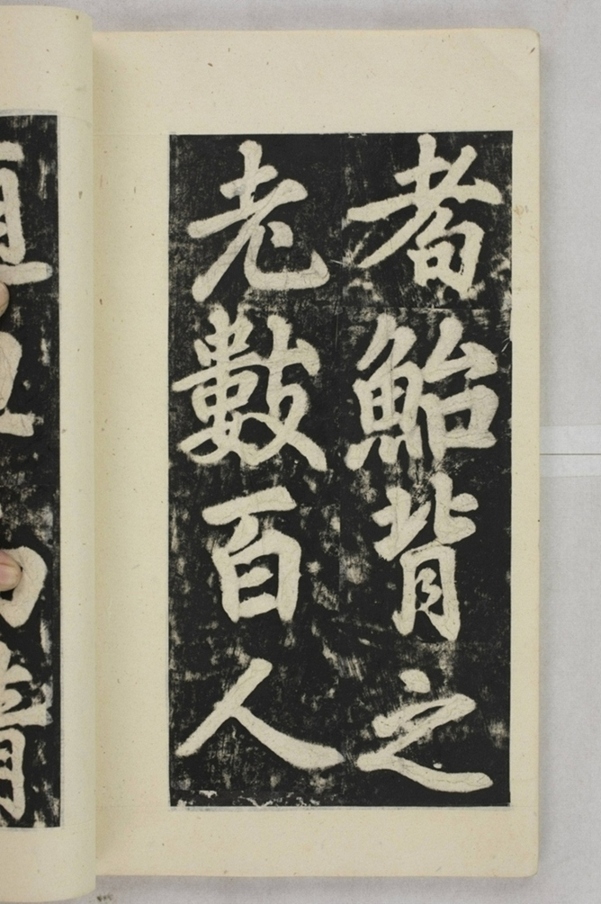 耇鮐背之
老數百人